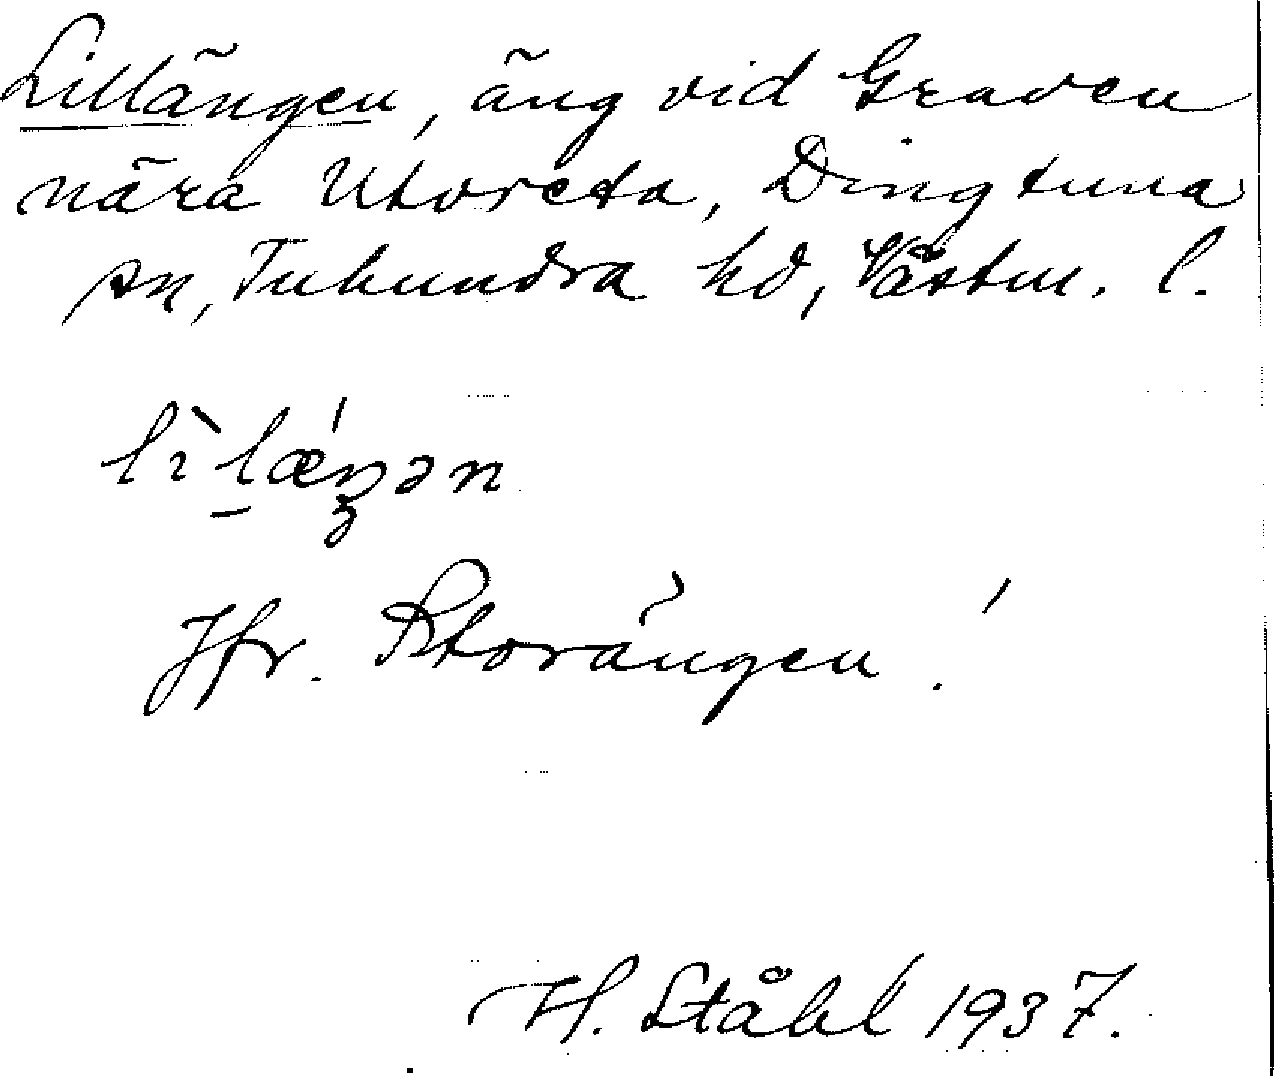 Lillängen, äng vid Graven
nära Utoresta, Dingtuna
sn, Tuhundra hd, Västm. l.
lì lǽŋən
Jfr. Storängen!
H. Ståhl 1937.